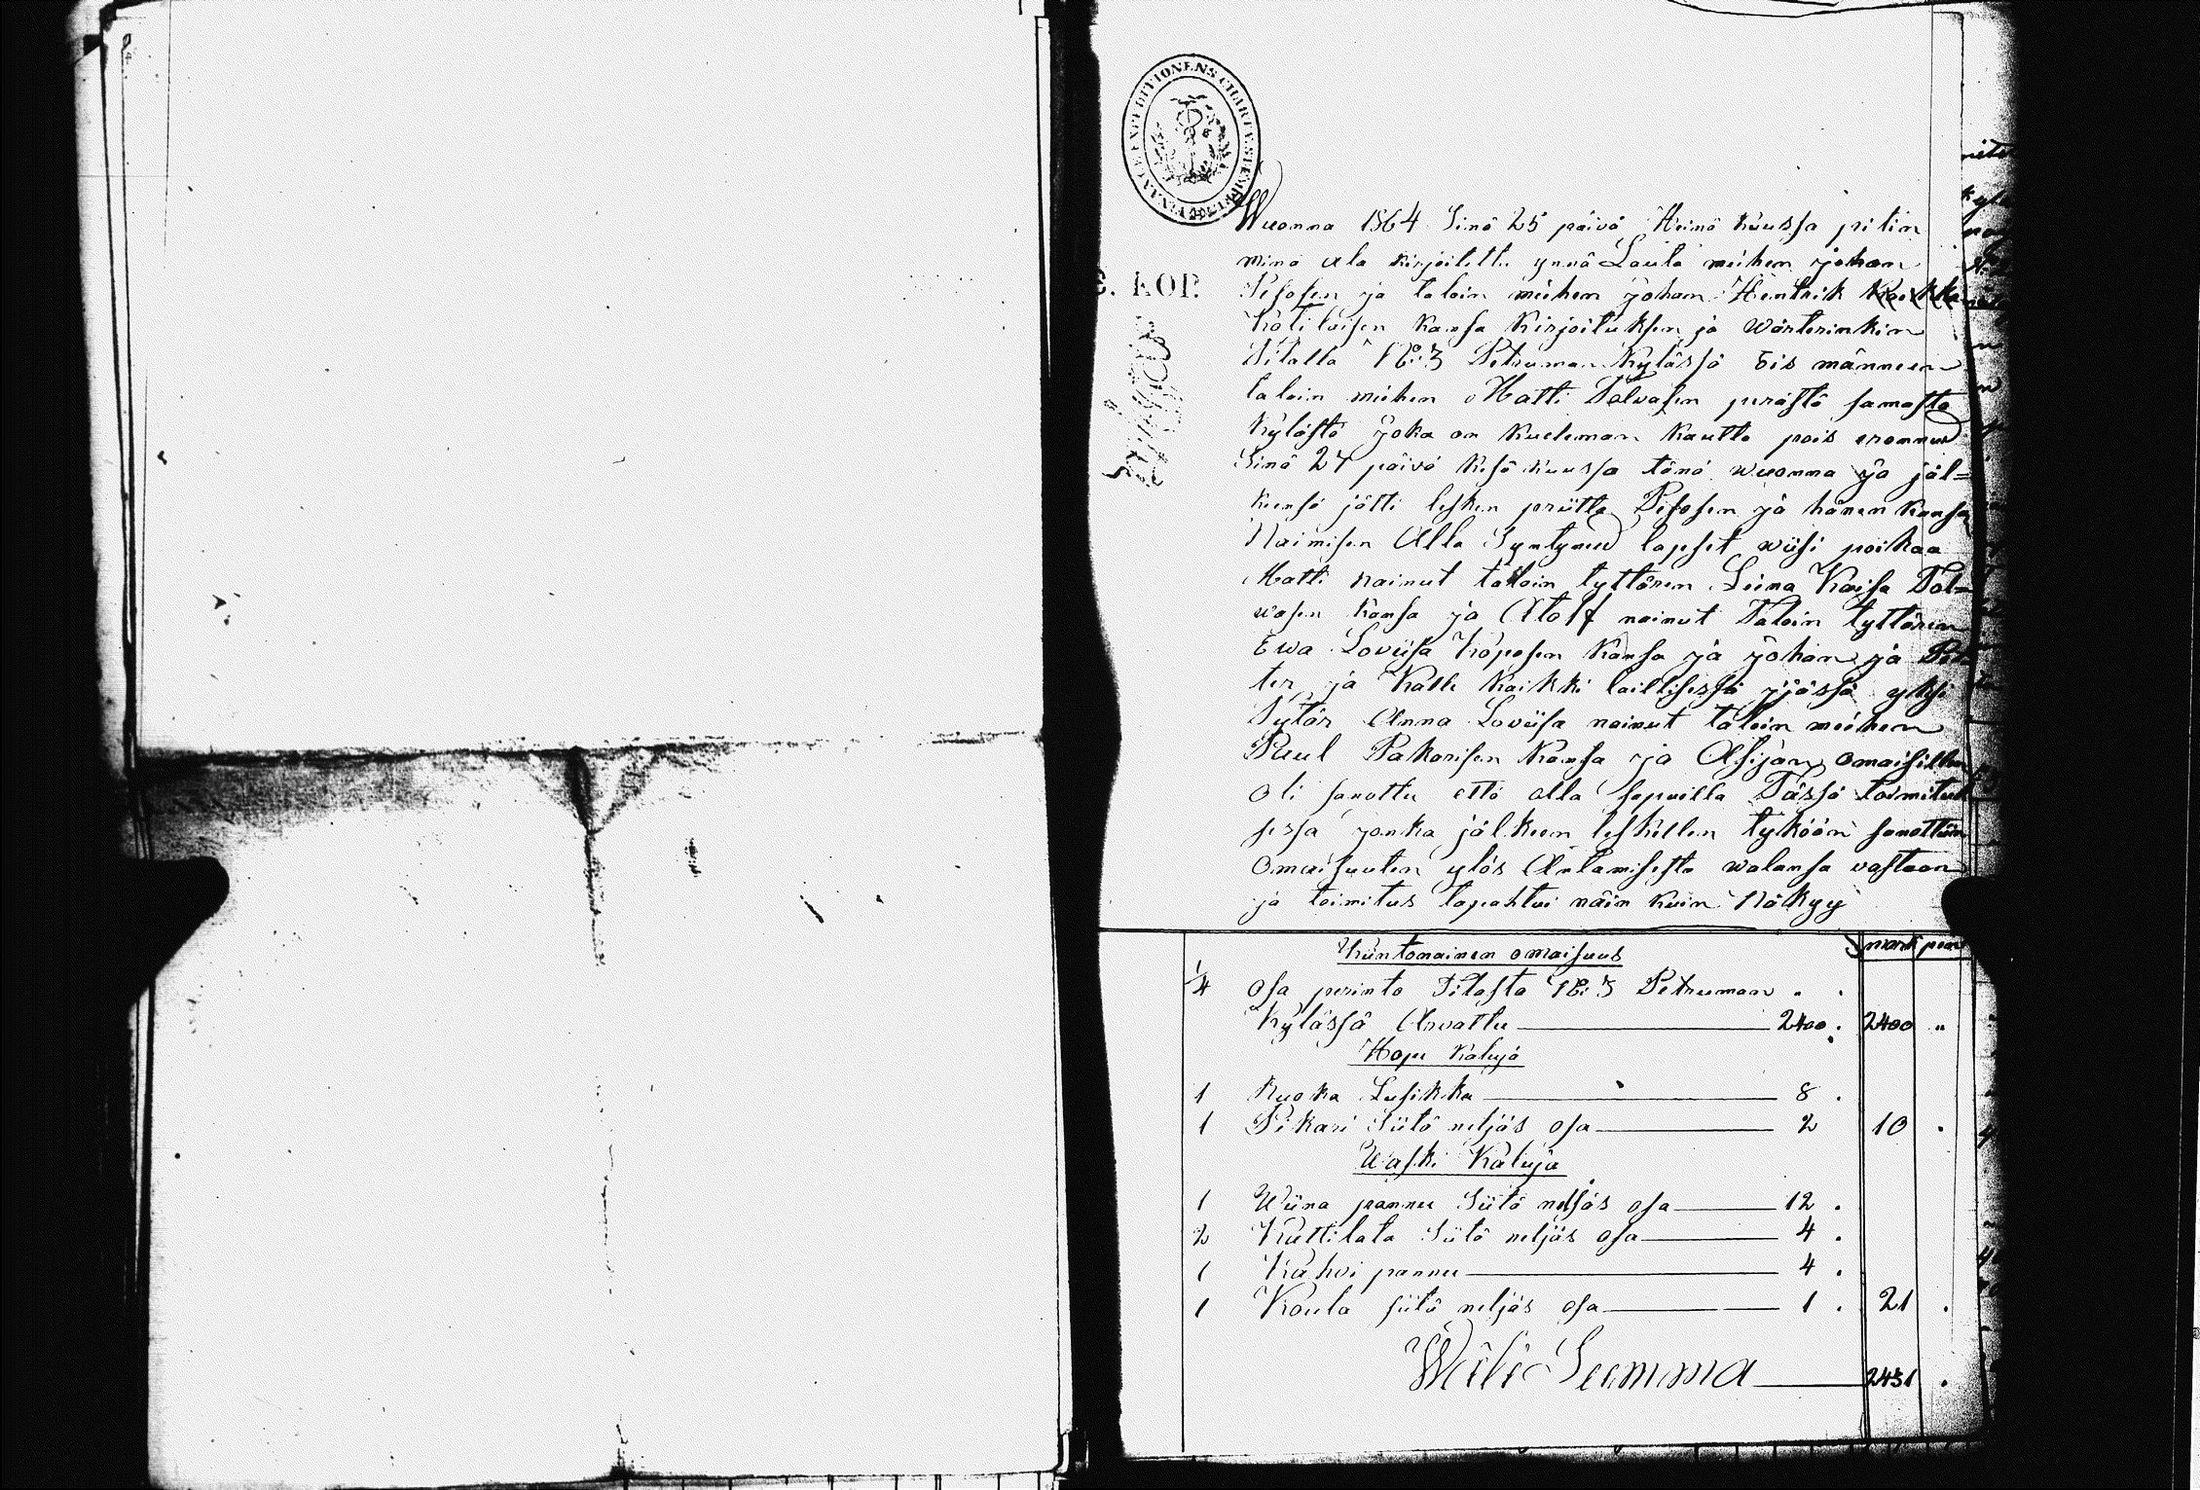 Wuonna 1864 Sinä 25 päivä Heinä kuussa pitin
minä ala kirjoitettu ynnä Lauta miehen johan
Pesosen ja taloin miehen johan Hentrik
Kotilaisen kansa Kirjoituksen ja wärterinkin
Tilalla No: 3 Petruman Kylässä Eis männeen
taloin miehen Matti Tolwasen perästä samasta
Kylästä joka on Kuoleman kautta pois eronnud
Sinä 24 päivä kesä kuussa tänä wuonna ja jäl=
keensä jätti lesken priitta Pesosen ja hänen kansa
Naimisen Alla Syntyned lapset wiisi poikaa
Matti nainut taloin tyttären Leina Kaisa Tol=
wasen kansa ja Atolf nainut Taloin tyttären
Ewa Loviisa Koposen kansa ja johan ja Pet
ter ja Kalle kaikki laillisessa ijässä yksi
Tytär Anna Loviisa nainut taloin miehen
Paul Pakarisen kansa ja Asijan omaisillen
oli sanottu että olla sapuilla Tässä toimituk
sessa jonka jälkeen leskellen tyköön sanottiin
omaisuuten ylös Antamisesta walansa vastaan
ja toimitus tapahtui näin kuin Näkyy
Kiintonainen omaisuus mark pen
1/4 Osa perinto Tilasta No: 3 Petruman
Kylässä Arvattu 2400 . 2400 "
Hopu kaluja
1 Ruoka Lusikka 8 .
1 Pikari Siitä neljäs osa 2 10 .
Waski Kaluja
1 Wiina pannu Siitä neljäs osa 12 .
2 Kuttilata Siitä neljäs osa 4 .
1 Kahvi pannu 4 .
1 Koula siitä neljäs osa 1 . 21 .
Wäli Summa 2431 .